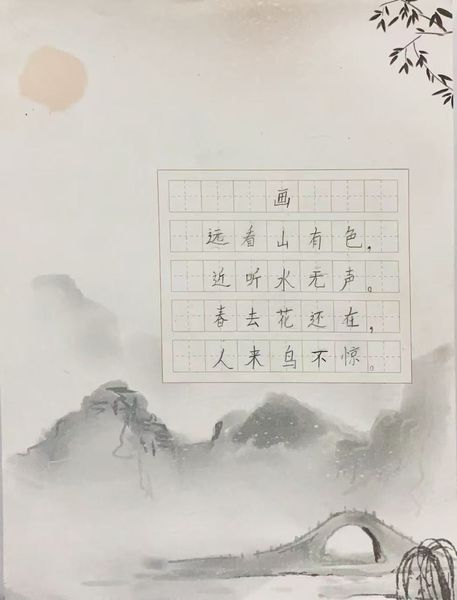 画
远看山有色,
近听水无声。
春去花还在,
人来鸟不惊。